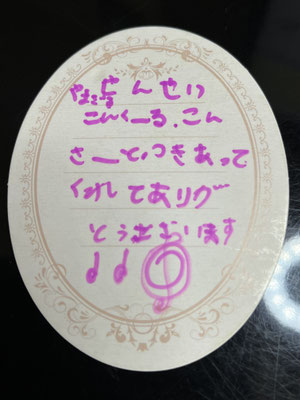 んせい
こんくーる、こん
さーとつきあって
くれてありが
とうございます